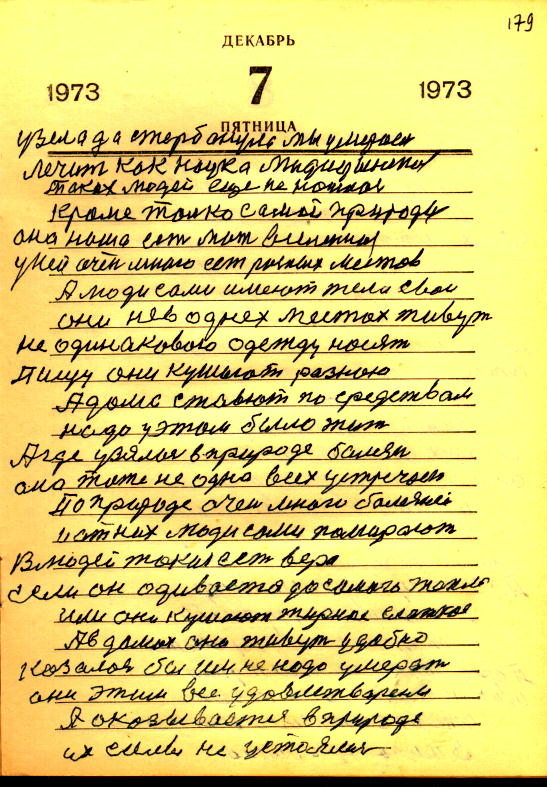 179
ДЕКАБРЬ
1973 7 1973
ПЯТНИЦА
мы умираем
лечит как наука медицына
таких людей еще не нашлося
кроме толко самой природы
она наша ест мат
у ней очен много ест розных местов
А люди сами имеют тела свои
они нев одних местах живут
не одинаковою одежду носят
Пищу они кушают разною
А дома ставют по средствам
надо у этом было жит
А где узялося вприроде болезн
она тоже не одна всех устречает
По природе очен много болезней
и от них люди сами помирают
Влюдей такая ест вера
если он одивается до самого тепла
или они кушают жирное слаткое
Ав домах они живут удобно
казалося бы им не надо умерат
они этим все удовлетварены
А оказывается вприроде
их силы не устаяли